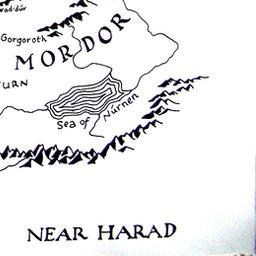 Gorgoroth
MORDOR
URN
Sea of Núrnen
NEAR HARAD